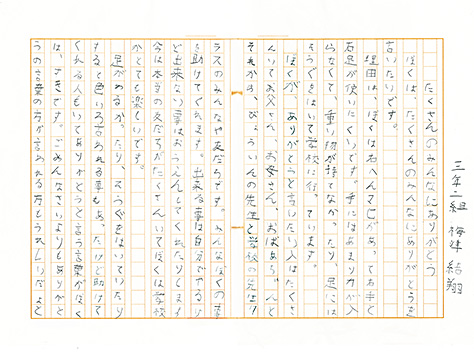 三年二組 梅津 結翔
たくさんのみんなにありがとう
ぼくは、たくさんのみんなにありがとうを
言いたいです。
理由は、ぼくは右へんマヒがあって右手と
右足が使いにくいです。手にはあまり力が入
らなくて、重い物が持てなかったり、足には
そうぐをはいて学校に行っています。
ぼくが、ありがとうと言いたい人はたくさ
んいてお父さん、お母さん、おばあちゃんと
それから、びょういんの先生と学校の先生、ク
ラスのみんなや友だちです。みんなぼくの事
を助けてくれます。出来る事は自分でやるけ
ど出来ない事はおうえんしてくれたりします
今は本当の友だちがたくさんいてぼくは学校
がとても楽しいです。
足がまがったり、そうぐをはいていたり
すると色いろ言われる事もあったけど助けて
くれる人もいてありがとうと言う言葉がぼく
は、すきです。ごめんなさいよりもありがと
うの言葉の方が言われる方もうれしいだよと